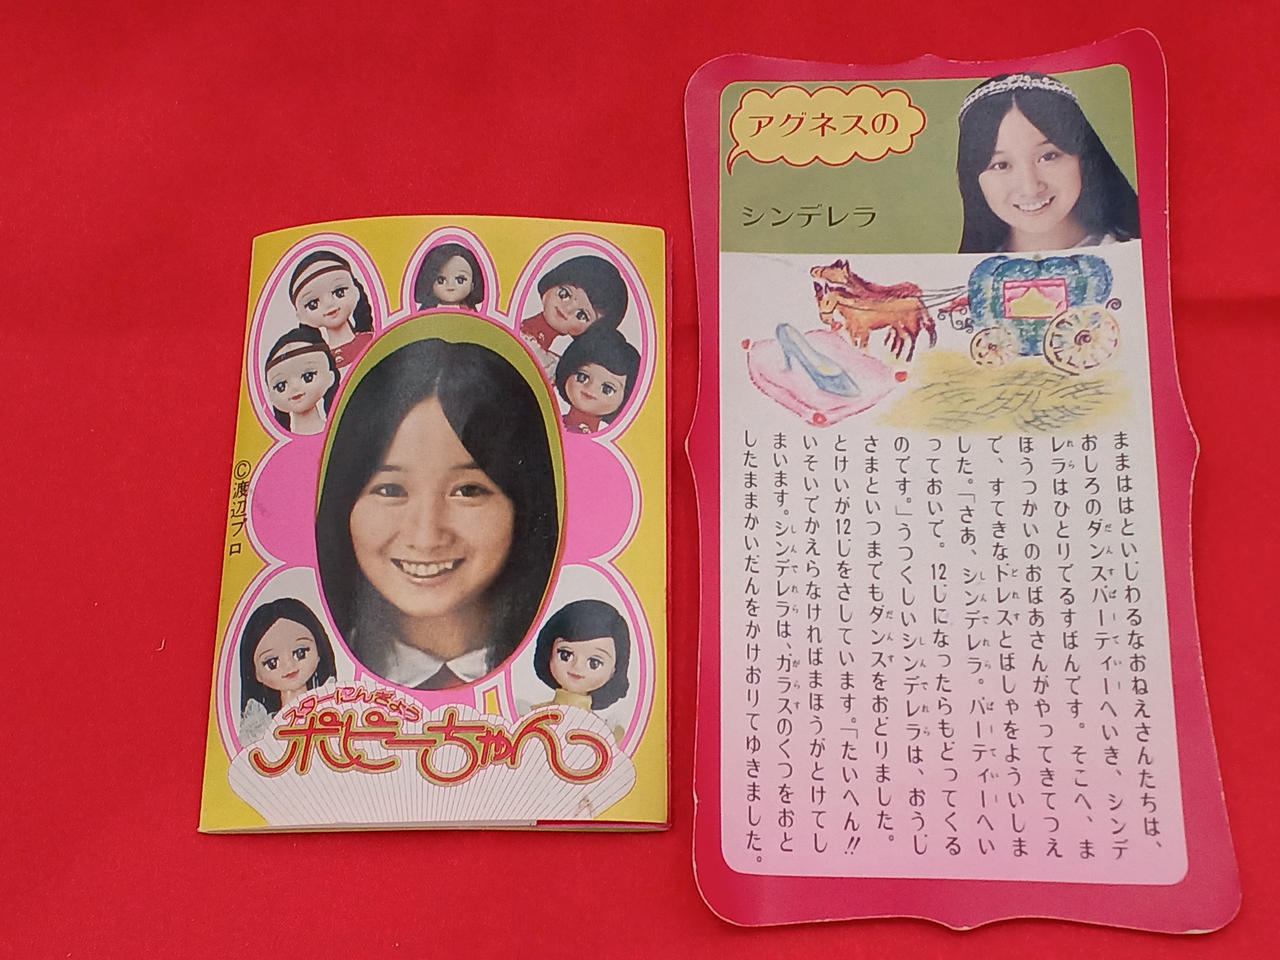 ©渡辺プロ
スターにんぎょう
ポピーちゃん
アグネスの
シンデレラ
ままははといじわるなおねえさんたちは、
おしろのダンスパーティーへいき、シンデ
レラはひとりでるすばんです。そこへ、ま
ほうつかいのおばあさんがやってきてつえ
で、すてきなドレスとばしゃをよういしま
した。「さあ、シンデレラ。パーティーへい
っておいで。12じになったらもどってくる
のです。」うつくしいシンデレラは、おうじ
さまといつまでもダンスをおどりました。
とけいが12じをさしています。「たいへん!!
いそいでかえらなければまほうがとけてし
まいます。シンデレラは、ガラスのくつをおと
したままかいだんをかけおりてゆきました。